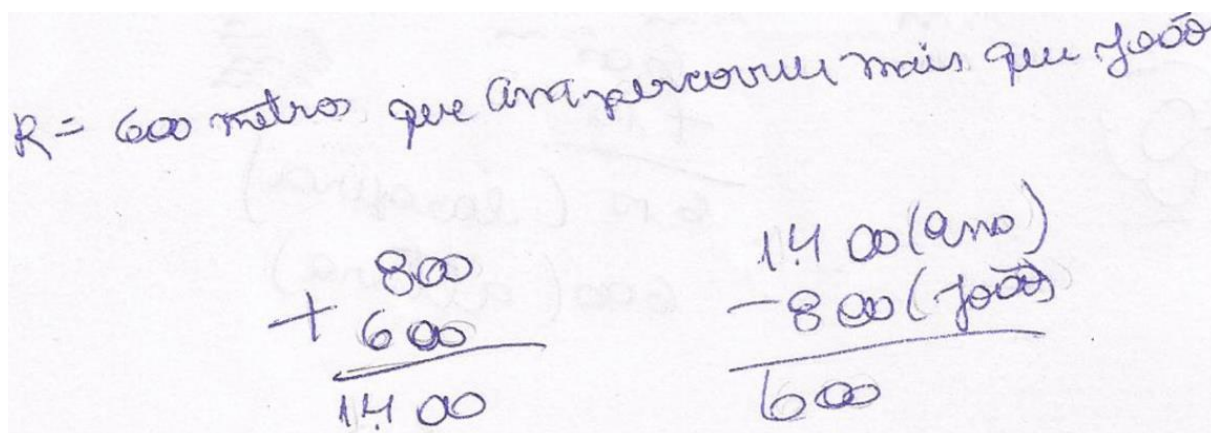 R = 600 metros que Ana percorreu mais que João
800
+ 600
1400
1400 (Ana)
- 800 (João)
600